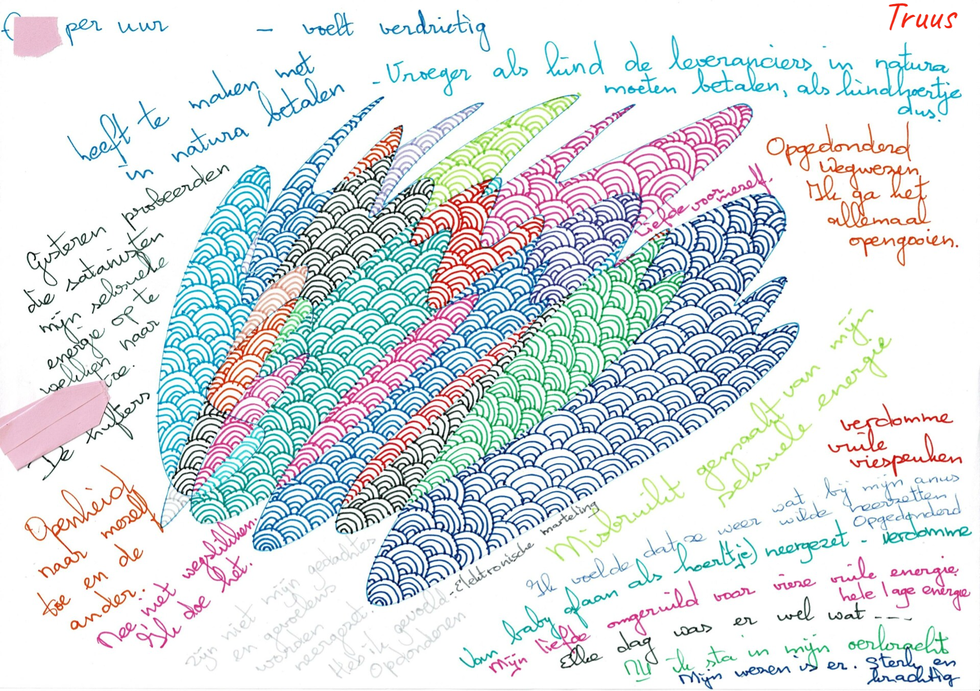 Truus
per uur - voelt verdrietig
heeft te maken met
in natura betalen
- Vroeger als kind de leveranciers in natura
moeten betalen, als kindhoertje
dus.
Opgedonderd
Wegwezen
Ik ga het
allemaal
opengooien.
Gisteren probeerden
die satanisten
mijn seksuele
energie op te
wekken naar
toe.
De
hifters
liefde voor mezelf.
Openheid
naar mezelf
toe en de
ander..
Nee, niet wegslikken.
Ik doe het.
zijn niet mijn gedachtes
en gevoelens
worden
neergezet..
Heb ik gevoeld
Opdonderen
- Elektronische marteling
Misbruikt gemaakt van mijn
seksuele energie
verdomme
vuile
viespeuken
Ik voelde dat ze weer wat bij mijn anus
wilde neerzetten
Opgedonderd
Van baby afaan als hoert(je) neergezet - verdomme
Mijn liefde omgeruild voor viere vuile energie
hele lage energie
Elke dag was er wel wat ----
NU ik sta in mijn oerkracht
Mijn wezen is er. Sterk en
krachtig